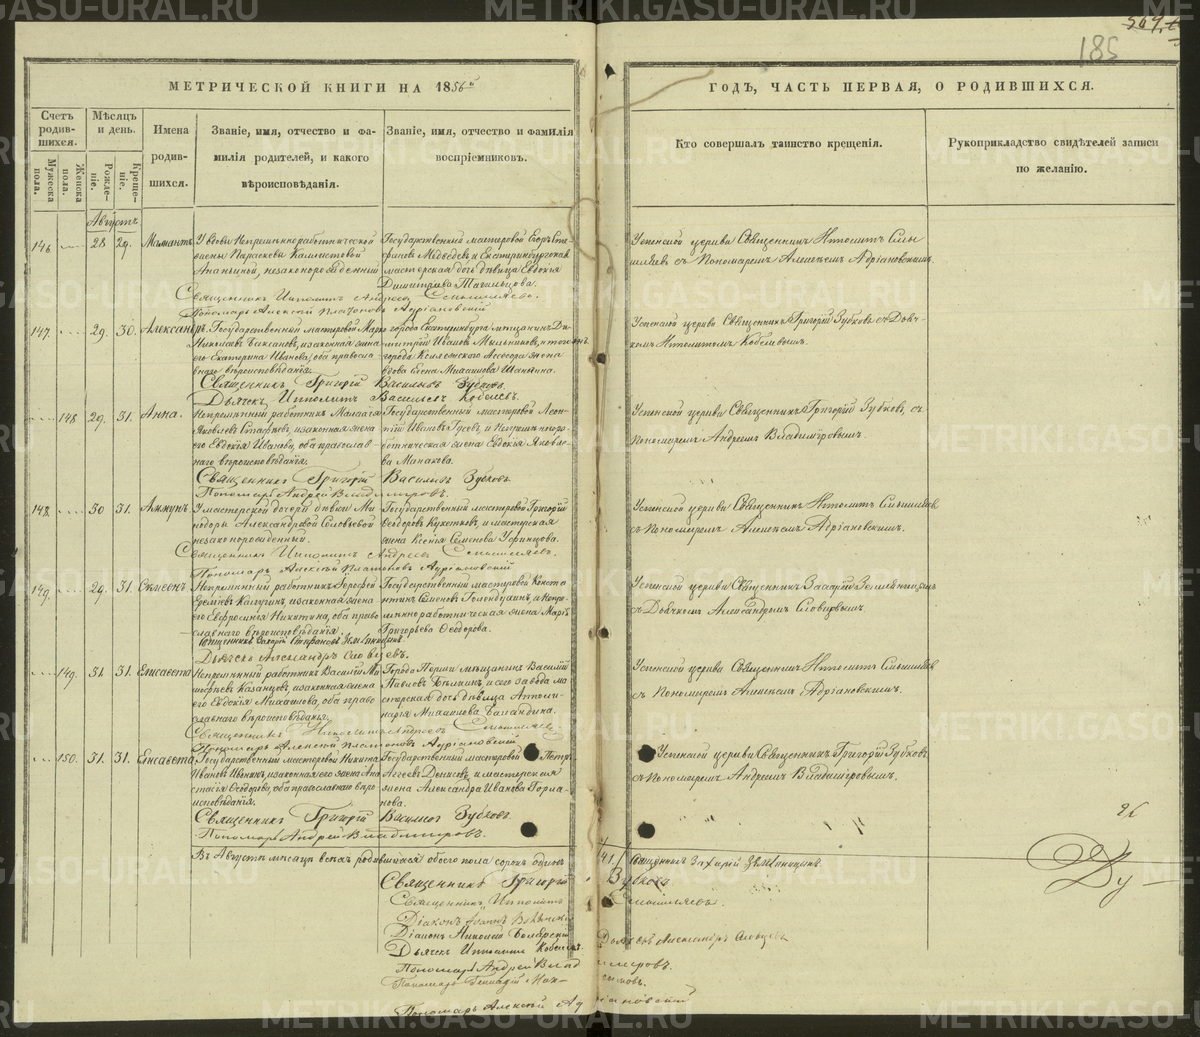 METRIKI.GASU-URAL.RU
569.
185
МЕТРИЧЕСКОЙ КНИГИ НА 1856й
ГОДЪ, ЧАСТЬ ПЕРВАЯ, О РОДИВШИХСЯ.
Счетъ родив-шихся.
Мужеска пола.
Женска пола.
Мѣсяцъ и день.
Рожде-нiе.
Креще-нiе.
Имена родив-шихся.
Званiе, имя, отчество и фа-
милiя родителей, и какого
вѣроисповѣданiя.
Званiе, имя, отчество и фамилiя
воспрiемниковъ.
Кто совершалъ таинство крещенiя.
Рукоприкладство свидѣтелей записи
по желанiю.
Августъ
146. 28 29. Мамантъ
У вдовы Непремѣнноработнической
жены Парасковiи Каллистовой
Ананьиной, незаконорожденный
Государственный мастеровой Егоръ Сте-
фановъ Медведевъ и Екатеринбургская
мастерская дочь дѣвица Евдокiя
Димитрiева
Успенской церкви Священникъ Ипполитъ Смы-
шляевъ съ Пономаремъ Алексѣемъ Адрiановскимъ.
Священникъ Ипполитъ Андреевъ Смышляевъ.
Пономарь Алексѣй Платоновъ Адрiановскiй
147. 29. 30. Александръ.
Государственный мастеровой
Николаевъ и законная жена
его Екатерина Иванова, оба правосла-
внаго вѣроисповѣданiя.
города Екатеринбурга мѣщанинъ Ди-
митрiй Ивановъ Мыльниковъ, и тогожъ
города Коллежскаго Ассесора жена
вдова Елена Михаилова
Успенской церкви Священникъ Григорiй Зубковъ съ Дьяч-
комъ Ипполитомъ Кобелевымъ.
Священникъ Григорiй Васильевъ Зубковъ.
Дьячекъ Ипполитъ Васильевъ Кобелевъ.
148. 29. 31. Анна.
Непремѣнный работникъ Малахiя
Яковлевъ и законная жена
его Евдокiя Иванова, оба православ-
наго вѣроисповѣданiя.
Государственный мастеровой Леон-
тiй Ивановъ Гусевъ, и Непремѣннора-
ботническая жена Евдокiя Яковле-
ва Манакова.
Успенской церкви Священникъ Григорiй Зубковъ, съ
Пономаремъ Андреемъ Владимiровымъ.
Священникъ Григорiй Васильевъ Зубковъ.
Пономарь Андрей Владимiровъ.
148. 30 31.
У мастерской дочери дѣвицы Ми-
нодоры Александровой Слобцовой
незаконорожденный.
Государственный мастеровой Григорiй
Ѳеодоровъ и мастерская
жена Ксенiя Семенова
Успенской церкви Священникъ Ипполитъ Смышляевъ
съ Пономаремъ Алексѣемъ Адрiановскимъ.
Священникъ Ипполитъ Андреевъ Смышляевъ.
Пономарь Алексѣй Платоновъ Адрiановскiй
149. 29. 31. Симеонъ
Непремѣнный работникъ
Еремѣевъ Калугинъ, и законная жена
его Евфросинiя Никитина, оба право-
славнаго вѣроисповѣданiя
Государственный мастеровой Конста-
нтинъ Семеновъ и Непре-
мѣнноработническая жена Марiя
Григорьева Ѳеодорова.
Успенской церкви Священникъ Захарiй Земляницынъ
съ Дьячкомъ Александромъ Словцовымъ.
Священникъ Захарiй Стефановъ Земляницынъ.
Дьячекъ Александръ Словцовъ.
149. 31. 31. Елисавета
Непремѣнный работникъ Василiй
Казанцовъ, и законная жена
его Евдокiя Михаилова, оба право-
славнаго вѣроисповѣданiя.
Города Перми мѣщанинъ Василiй
Павловъ и сего завода ма-
стерская дочь дѣвица Аполли-
нарiя Михаилова Баландина.
Успенской церкви Священникъ Ипполитъ Смышляевъ
съ Пономаремъ Алексѣемъ Адрiановскимъ.
Священникъ Ипполитъ Андреевъ Смышляевъ
Пономарь Алексѣй Платоновъ Адрiановскiй
150. 31. 31. Елисавета
Государственный мастеровой Никита
Ивановъ и законная его жена Ана-
стасiя Ѳеодорова, оба православнаго вѣро-
исповѣданiя.
Государственный мастеровой Петръ
Агѣевъ Денисовъ, и мастерская
жена Александра Иванова Горла-
нова.
Успенской церкви Священникъ Григорiй Зубковъ
съ Пономаремъ Андреемъ Владимiровымъ.
Священникъ Григорiй Васильевъ Зубковъ.
Пономарь Андрей Владимiровъ.
26
Въ Августѣ мѣсяцѣ всѣхъ родившихся обоего пола сорокъ одинъ
41. Священникъ Захарiй Земляницынъ
Священникъ Григорiй Зубковъ
Священникъ Ипполитъ Смышляевъ.
Дiаконъ Iоаннъ
Дiаконъ Николай
Дьячекъ Александръ Словцовъ
Дьячекъ Ипполитъ Кобелевъ
Пономарь Андрей Владимiровъ.
Пономарь Геннадiй
Пономарь Алексѣй Адрiановскiй